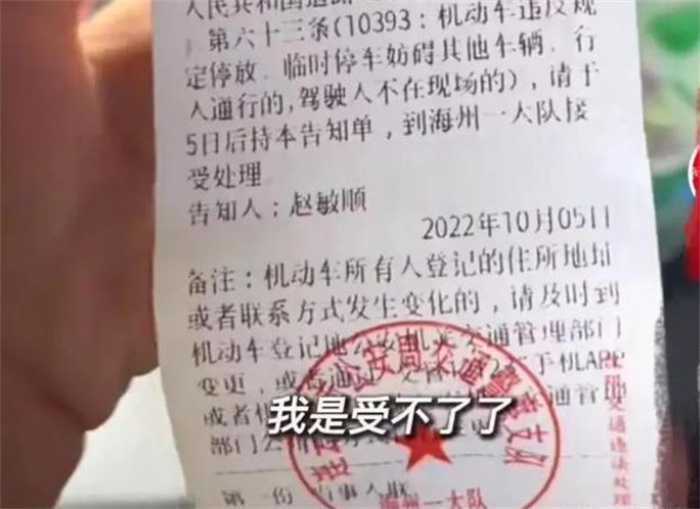 人民共和国道路
第六十三条(10393：机动车违反规
定停放、临时停车妨碍其他车辆、行
人通行的,驾驶人不在现场的)，请于
5日后持本告知单，到海州一大队接
受处理
告知人：赵敏顺
2022年10月05日
备注：机动车所有人登记的住所地址
或者联系方式发生变化的，请及时到
机动车登记地公安机关交通管理部门
变更，或者通过 手机APP
或者 交通管理
部门
我是受不了了
公安局交通警察支队
海州一大队
交通违法处理
第一份 当事人联